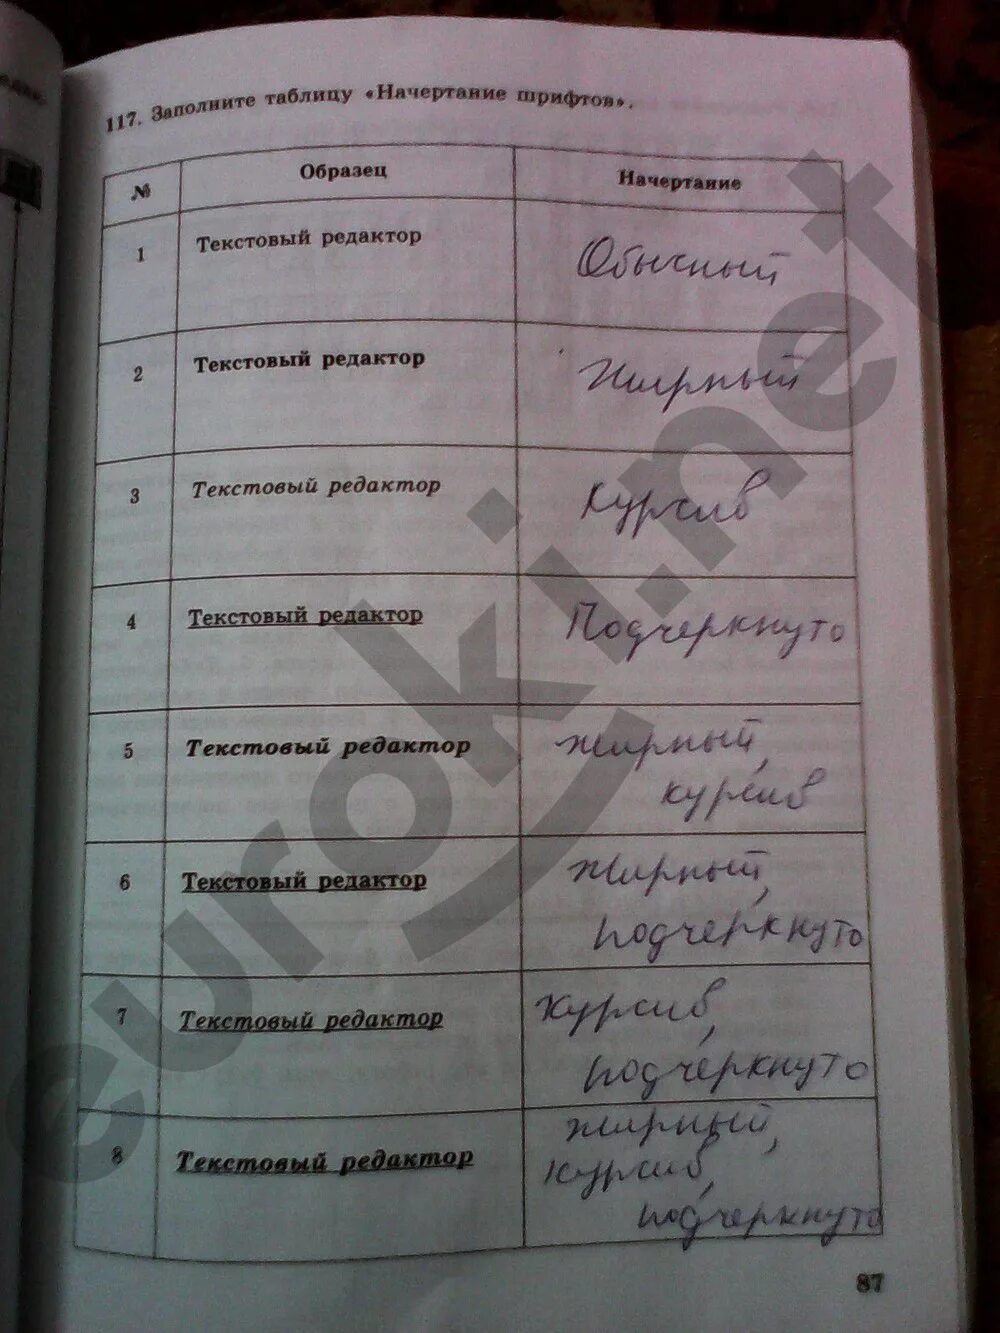 117. Заполните таблицу «Начертание шрифтов».
№ Образец Начертание
1 Текстовый редактор Обычный
2 Текстовый редактор Жирный
3 Текстовый редактор Курсив
4 Текстовый редактор Подчеркнуто
5 Текстовый редактор жирный,
курсив
6 Текстовый редактор Жирный,
подчеркнуто
7 Текстовый редактор Курсив,
подчеркнуто
8 Текстовый редактор жирный,
курсив,
подчеркнуто
87
euroki.net